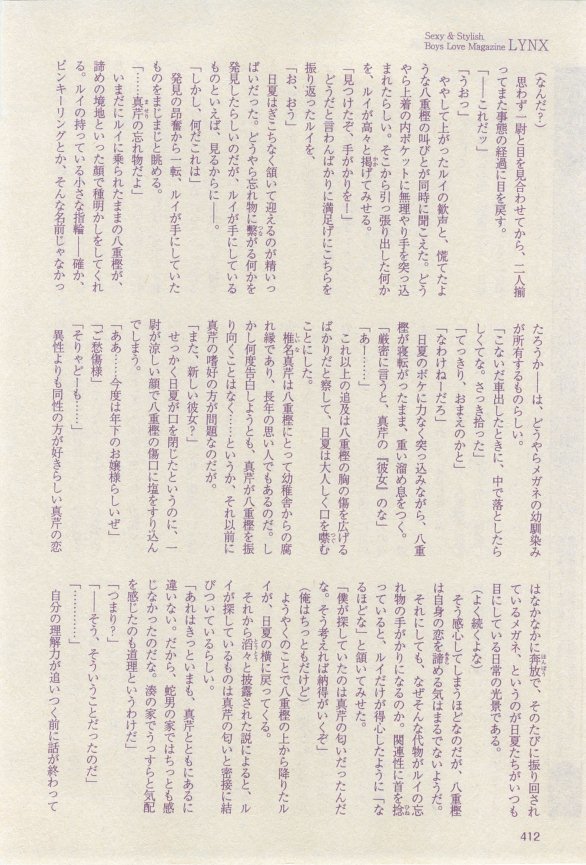 Sexy & Stylish
Boys Love Magazine LYNX
（なんだ？）
思わず一尉と目を見合わせてから、二人揃
ってまた事態の経過に目を戻す。
「――これだッ」
「うおっ」
ややして上がったルイの歓声と、慌てたよ
うな八重樫の叫びとが同時に聞こえた。どう
やら上着の内ポケットに無理やり手を突っ込
まれたらしい。そこから引っ張り出した何か
を、ルイが高々と掲げてみせる。
「見つけたぞ、手がかりを！」
どうだと言わんばかりに満足げにこちらを
振り返ったルイを、
「お、おう」
日夏はぎこちなく頷いて迎えるのが精いっ
ぱいだった。どうやら忘れ物に繋がる何かを
発見したらしいのだが、ルイが手にしている
ものといえば、見るからに――。
「しかし、何だこれは」
発見の昂奮から一転、ルイが手にしていた
ものをまじまじと眺める。
「……真芹の忘れ物だよ」
いまだにルイに乗られたままの八重樫が、
諦めの境地といった顔で種明かしをしてくれ
る。ルイの持っている小さな指輪――確か、
ピンキーリングとか、そんな名前じゃなかっ
たろうか――は、どうやらメガネの幼馴染み
が所有するものらしい。
「こないだ車出したときに、中で落としたら
しくてな。さっき拾った」
「てっきり、おまえのかと」
「なわけねーだろ」
日夏のボケに力なく突っ込みながら、八重
樫が寝転がったまま、重い溜め息をつく。
「厳密に言うと、真芹の『彼女』のな」
「あー……」
これ以上の追及は八重樫の胸の傷を広げる
ばかりだと察して、日夏は大人しく口を噤む
ことにした。
椎名真芹は八重樫にとって幼稚舎からの腐
れ縁であり、長年の思い人でもあるのだ。し
かし何度告白しようとも、真芹が八重樫を振
り向くことはなく……というか、それ以前に
真芹の嗜好の方が問題なのだが。
「また、新しい彼女？」
せっかく日夏が口を閉じたというのに、一
尉が涼しい顔で八重樫の傷口に塩をすり込ん
でしまう。
「ああ……今度は年下のお嬢様らしいぜ」
「ご愁傷様」
「そりゃどーも……」
異性よりも同性の方が好きらしい真芹の恋
はなかなかに奔放で、そのたびに振り回され
ているメガネ、というのが日夏たちがいつも
目にしている日常の光景である。
（よく続くよな）
そう感心してしまうほどなのだが、八重樫
は自身の恋を諦める気はまるでないようだ。
それにしても、なぜそんな代物がルイの忘
れ物の手がかりになるのか。関連性に首を捻
っていると、ルイだけが得心したように「な
るほどな」と頷いてみせた。
「僕が探していたのは真芹の匂いだったんだ
な。そう考えれば納得がいくぞ」
（俺はちっともだけど）
ようやくのことで八重樫の上から降りたル
イが、日夏の横に戻ってくる。
それから滔々と披露された説によると、ル
イが探しているものは真芹の匂いと密接に結
びついているらしい。
「あれはきっといまも、真芹とともにあるに
違いない。だから、蛇男の家ではちっとも感
じなかったのだな。湊の家でうっすらと気配
を感じたのも道理というわけだ」
「つまり？」
「――そう、そういうことだったのだ」
「…………」
自分の理解力が追いつく前に話が終わって
412